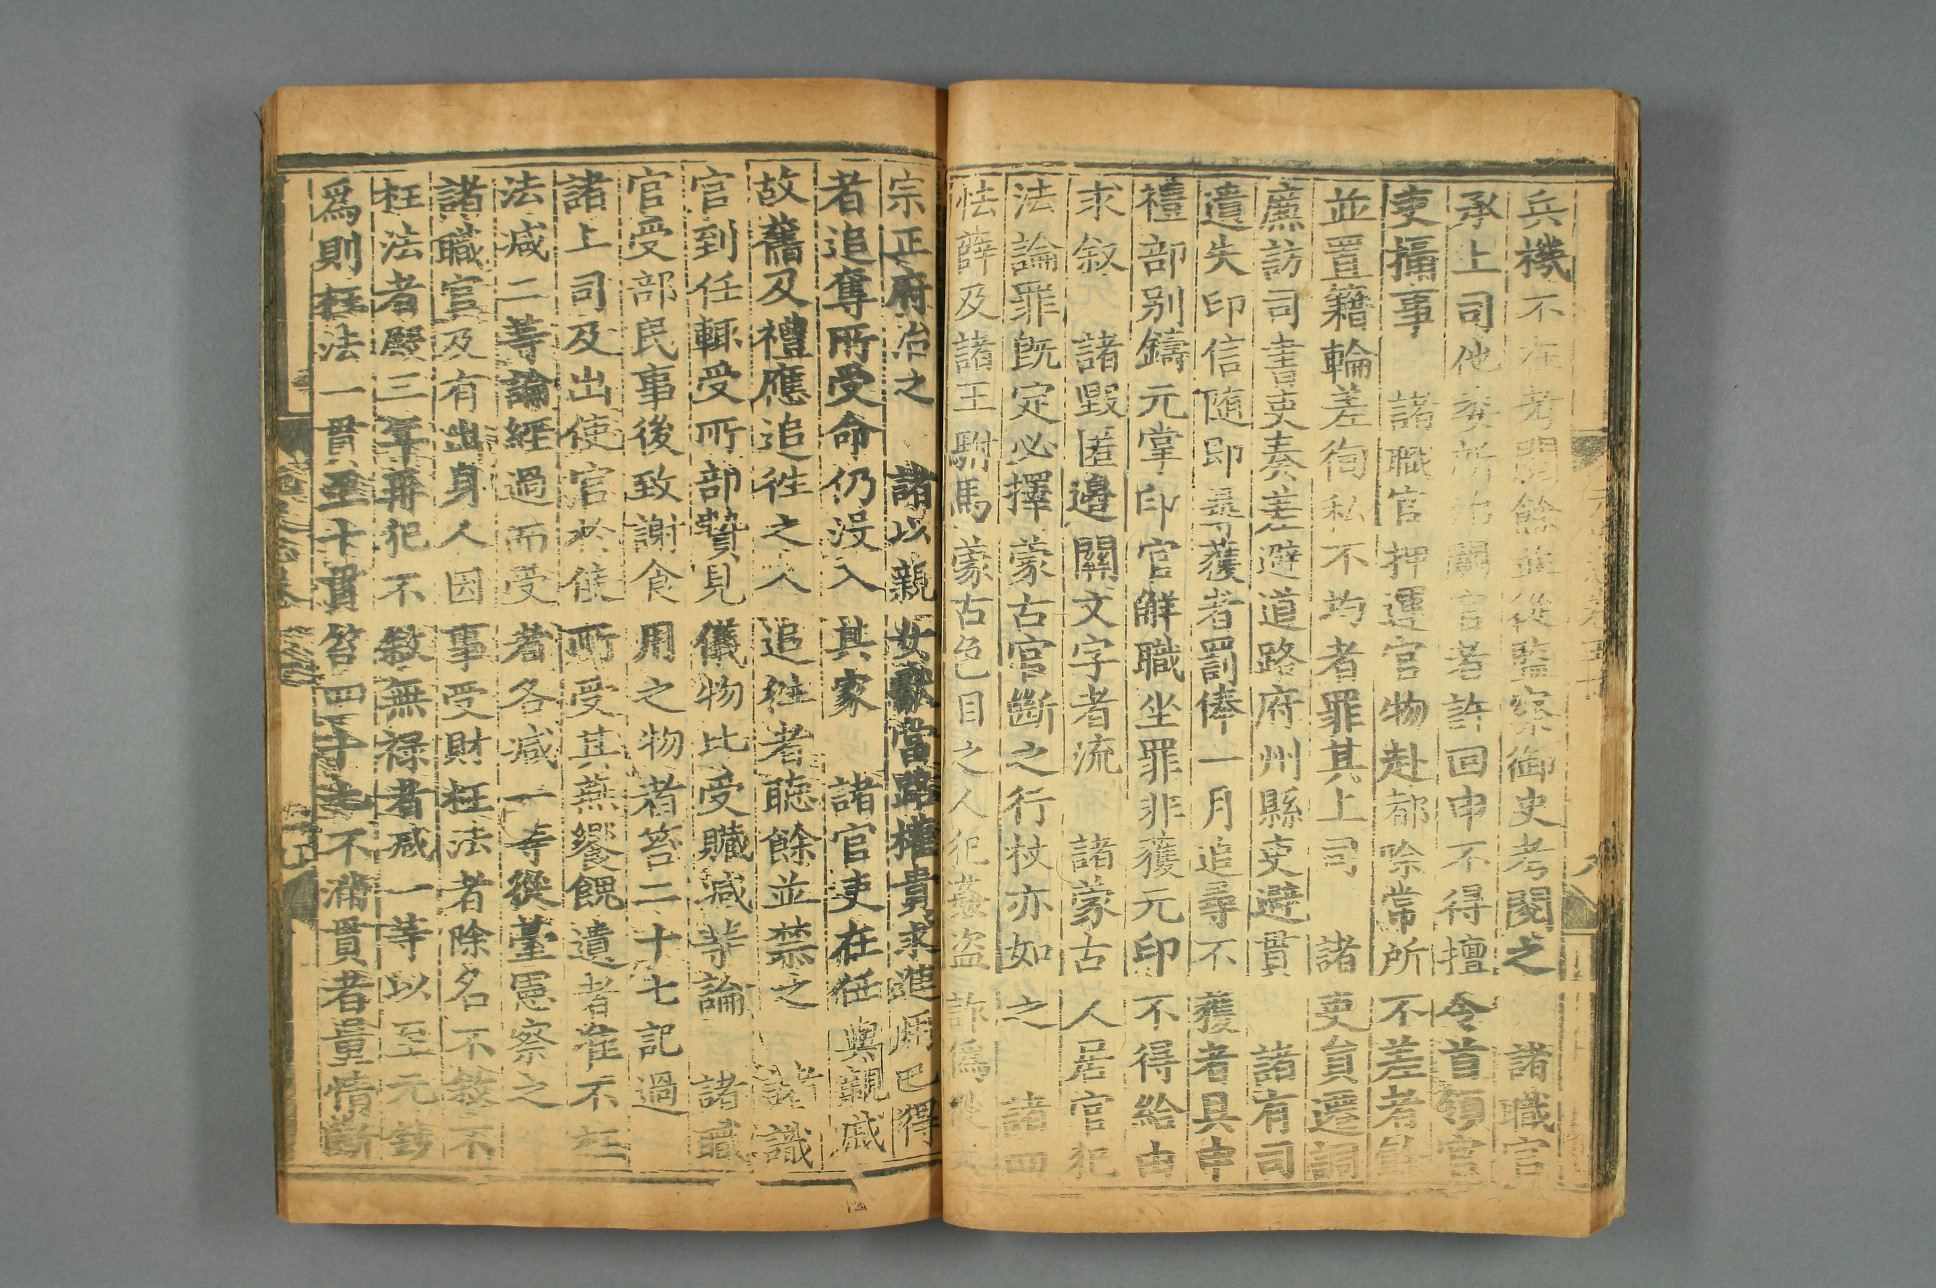 兵機不在考閱餘並從監察御史考閱之　諸職官
承上司他委所治闕官者許回申不得擅令首領官
吏攝事　諸職官押運官物赴都除常所不差者餘
並置籍輪差徇私不均者罪其上司　諸吏員遷調
廉訪司書吏奏差避道路府州縣吏避貫　諸有司
遺失印信隨即尋獲者罰俸一月追尋不獲者具申
禮部別鑄元掌印官解職坐罪非獲元印不得給由
求敘　諸毀匿邊關文字者流　諸蒙古人居官犯
法論罪既定必擇蒙古官斷之行杖亦如之　諸四
怯薛及諸王駙馬蒙古色目之人犯姦盜詐偽從大
宗正府治之　諸以親女獻當路權貴求進用已得
者追奪所受命仍没入其家　諸官吏在任與親戚
故舊及禮應追往之人追往者聽餘並禁之　諸職
官到任輒受所部贄見儀物比受贓減等論　諸職
官受部民事後致謝食用之物者笞二十七記過
諸上司及出使官於使所受其燕饗餽遺者准不枉
法減二等論經過而受者各減一等從臺憲察之
諸職官及有出身人因事受財枉法者除名不敘不
枉法者殿三年再犯不敘無祿者減一等以至元鈔
爲則枉法一貫至十貫笞四十七不滿貫者量情斷